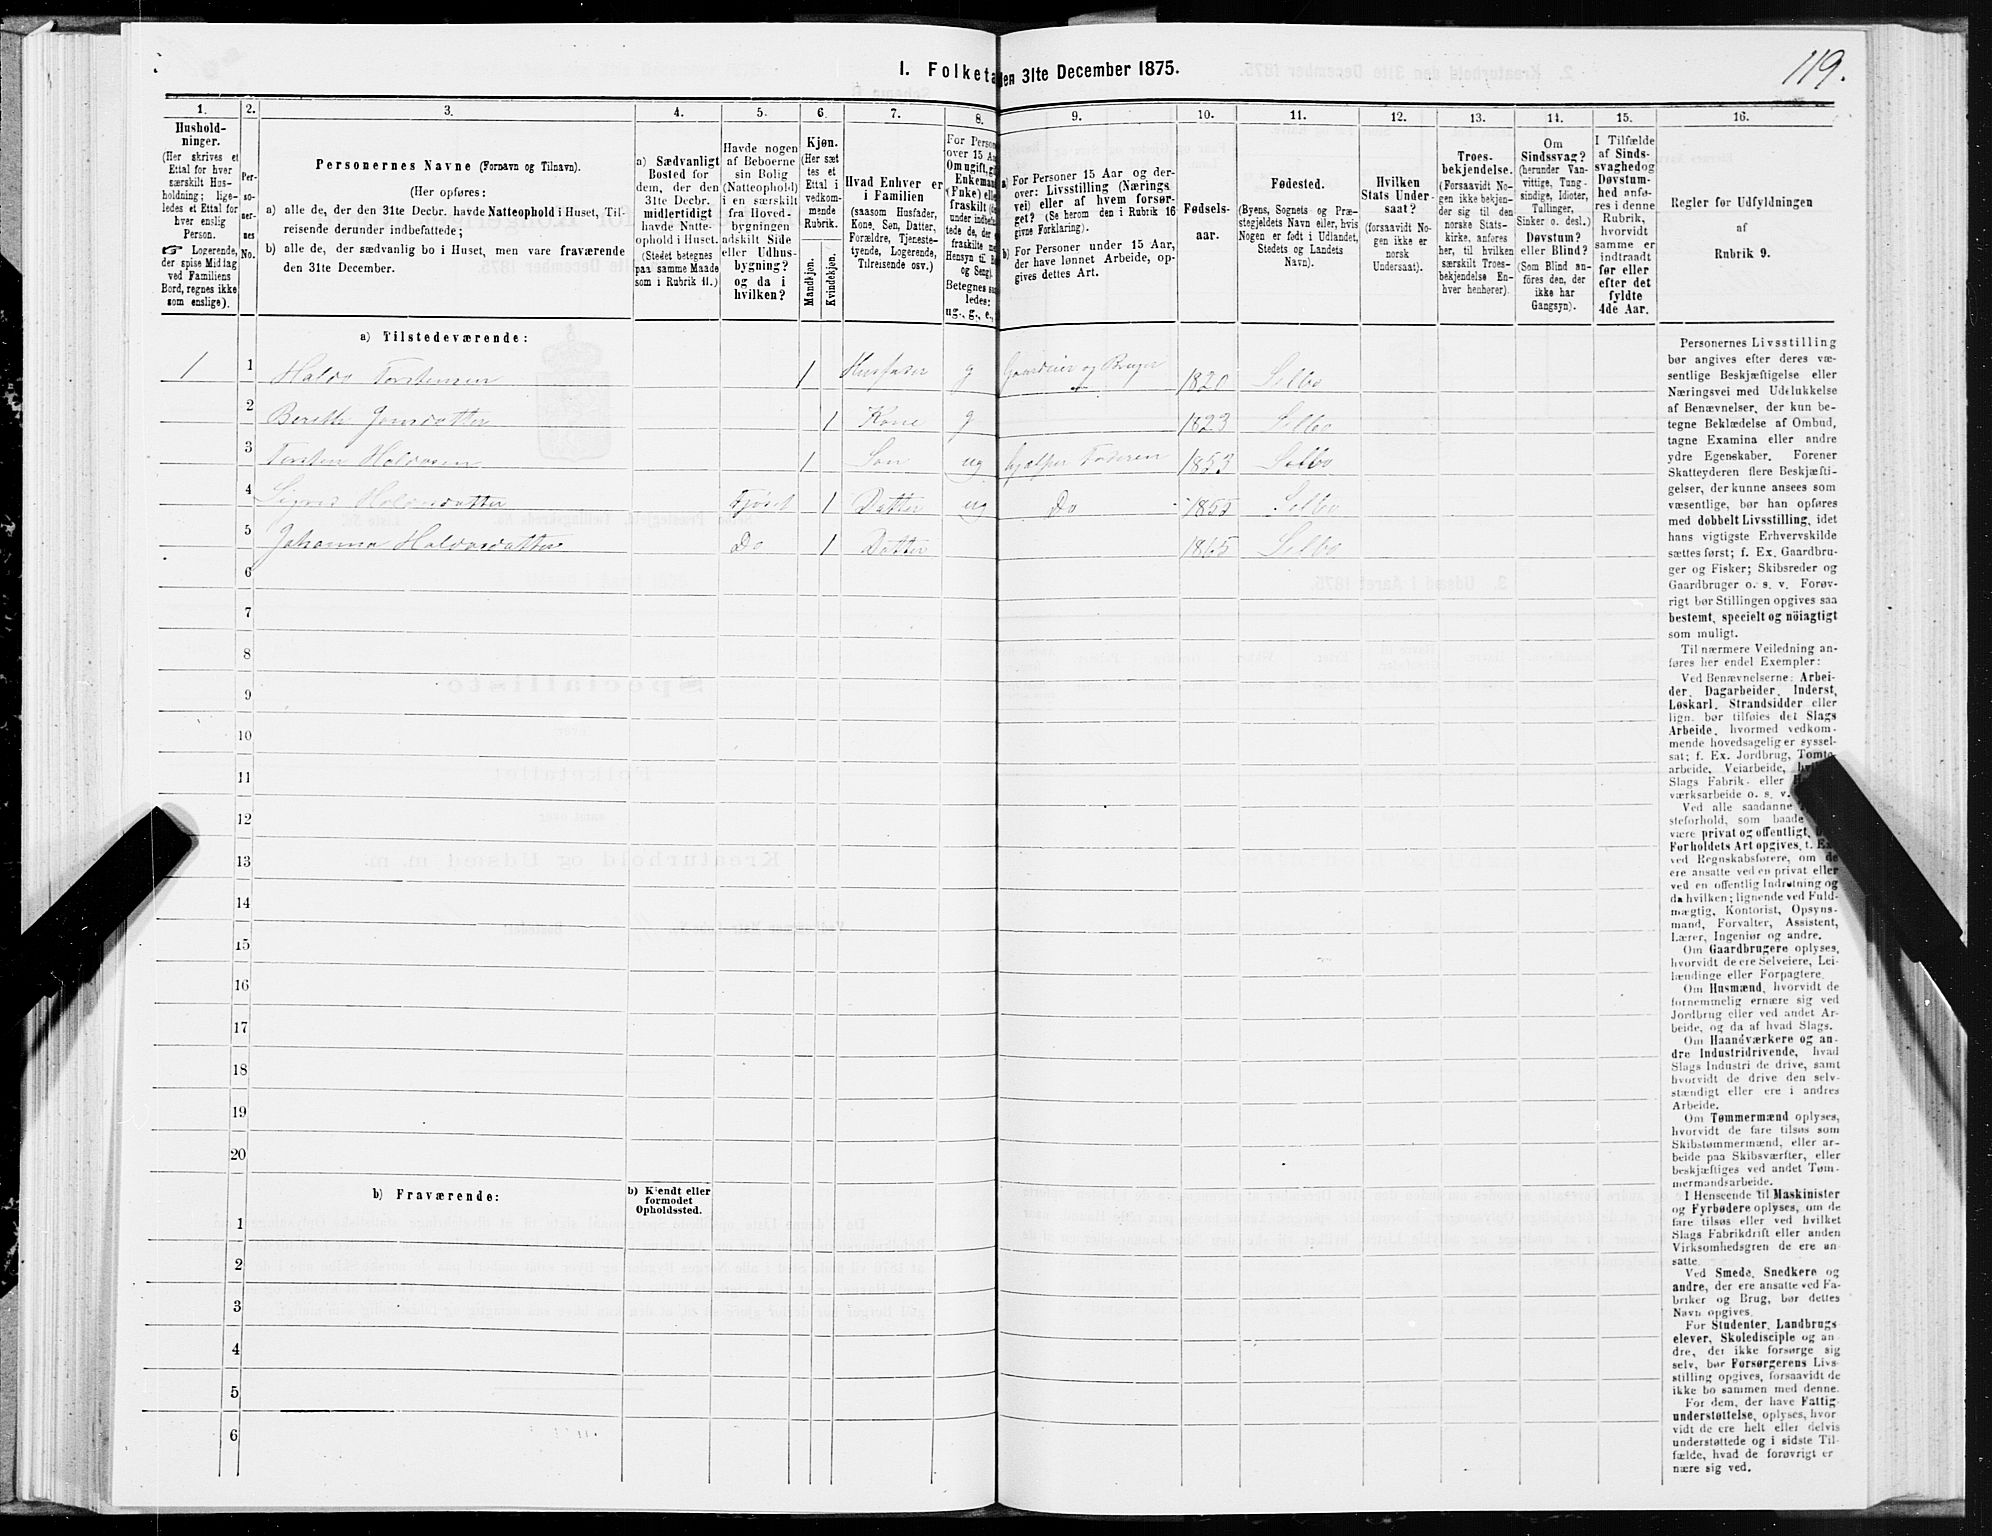 119.
I. Folketa
den 31te December 1875.
1.
2.
3.
4.
5.
6.
7.
8.
9.
10.
11.
12.
13.
14.
15.
16.
Hushold-
ninger.
(Her skrives et
Ettal for hver
særskilt Hus-
holdning; lige-
ledes et Ettal for
hver enslig
Person.
☞ Logerende,
der spise Middag
ved Familiens
Bord, regnes ikke
som enslige).
Per-
so-
ner-
nes
No.
Personernes Navne (Fornavn og Tilnavn).
(Her opføres:
a) alle de, der den 31te Decbr. havde Natteophold i Huset, Til-
reisende derunder indbefattede;
b) alle de, der sædvanlig bo i Huset, men vare fraværende
den 31te December.
a) Sædvanligt
Bosted for
dem, der den
31te Decbr.
midlertidigt
havde Natte-
ophold i Huset.
(Stedet betegnes
paa samme Maade
som i Rubrik 11.)
Havde nogen
af Beboerne
sin Bolig
(Natteophold)
i en særskilt
fra Hoved-
bygningen
adskilt Side
eller Udhus-
bygning?
og da i
hvilken?
Kjøn.
(Her sæt
tes et
Ettal i
vedkom-
mende
Rubrik.
Mandkjøn.
Kvindekjøn.
Hvad Enhver er
i Familien
(saasom Husfader,
Kone, Søn, Datter,
Forældre, Tjeneste-
tyende, Logerende,
Tilreisende osv.)
For Person
over 15 Aa
Om ugift, gi
Enkeman
(Enke) elle
fraskilt
under indbe
tede de, der
fraskilte
Hensyn til B
og Seng).
Betegnes saa
ledes:
ug., g., e.,
a) For Personer 15 Aar og der-
over: Livsstilling (Nærings
vei) eller af hvem forsør-
get? (Se herom den i Rubrik 16
givne Forklaring).
b) For Personer under 15 Aar,
der have lønnet Arbeide, op-
gives dettes Art.
Fødsels-
aar.
Fødested.
(Byens, Sognets og Præ-
stegjeldets Navn eller, hvis
Nogen er født i Udlandet,
Stedets og Landets
Navn).
Hvilken
Stats Under-
saat?
(forsaavidt No-
gen ikke er
norsk
Undersaat).
Troes-
bekjendelse.
(Forsaavidt No-
gen ikke bekjen-
der sig til den
norske Stats-
kirke, anføres
her, til hvilken
særskilt Troes-
bekjendelse En-
hver henhører).
Om
Sindssvag?
(herunder Van-
vittige, Tung-
sindige, Idioter,
Tullinger,
Sinker o. desl.)
Døvstum?
eller Blind?
(Som Blind an-
føres den, der
ikke har
Gangsyn).
I Tilfælde
af Sinds-
svaghed og
Døvstum-
hed anfø-
res i denne
Rubrik,
hvorvidt
samme er
indtraadt
før eller
efter det
fyldte
4de Aar.
Regler for Udfyldningen
af
Rubrik 9.
a) Tilstedeværende:
1 1 Haldo Torstensen 1 Husfader g Gaardeier og Bruger 1820 Selbo
2 Berethe Jonsdatter 1 Kone g 1823 Selbo
3 Torsten Haldosen 1 Søn ug hjælper Faderen 1853 Selbo
4 Sigrid Haldosdatter Fjøset 1 Datter ug Do 1855 Selbo
5 Johanna Haldosdatter Do 1 Datter 1865 Selbo
6
7
8
9
10
11
12
13
14
15
16
17
18
19
20
b) Fraværende:
b) Kjendt eller
formodet
Opholdssted.
1
2
3
4
5
6
Personernes Livsstilling
bør angives efter deres væ-
sentlige Beskjæftigelse eller
Næringsvei med Udelukkelse
af Benævnelser, der kun be-
tegne Beklædelse af Ombud,
tagne Examina eller andre
ydre Egenskaber. Forener
Skatteyderen flere Beskjæfti-
gelser, der kunne ansees som
væsentlige, bør han opføres
med dobbelt Livsstilling, idet
hans vigtigste Erhvervskilde
sættes først; f. Ex. Gaardbru-
ger og Fisker; Skibsreder og
Gaardbruger o. s. v. Forøv-
rigt bør Stillingen opgives saa
bestemt, specielt og nöiagtigt
som muligt.
Til nærmere Veiledning an-
føres her endel Exempler:
Ved Benævnelserne: Arbei-
der, Dagarbeider, Inderst,
Løskarl, Strandsidder eller
lign. bør tilføies det Slags
Arbeide, hvormed vedkom-
mende hovedsagelig er syssel-
sat; f. Ex. Jordbrug, Tomte-
arbeide, Veiarbeide,
Slags Fabrik- eller
værksarbeide o. s. v.
Ved alle saadanne
steforhold, som baade
være privat og offentligt,
Forholdets Art opgives, f. Ex.
ved Regnskabsførere, om de
ere ansatte ved en privat eller
ved en offentlig Indretning og
da hvilken; lignende ved Fuld-
mægtig, Kontorist, Opsyns-
mand, Forvalter, Assistent,
Lærer, Ingeniør og andre.
Om Gaardbrugere oplyses,
hvorvidt de ere Selveiere, Lei-
lændinge eller Forpagtere.
Om Husmænd, hvorvidt de
fornemmelig ernære sig ved
Jordbrug eller ved andet Ar-
beide, og da af hvad Slags.
Om Haandværkere og an-
dre Industridrivende, hvad
Slags Industri de drive, samt
hvorvidt de drive den selv-
stændigt eller ere i andres
Arbeide.
Om Tømmermænd oplyses,
hvorvidt de fare tilsøs som
Skibstømmermænd, eller ar-
beide paa Skibsværfter, eller
beskjæftiges ved andet Tøm-
mermandsarbeide.
I Henseende til Maskinister
og Fyrbødere oplyses, om de
fare tilsøs eller ved hvilket
Slags Fabrikdrift eller anden
Virksomhedsgren de ere an-
satte.
Ved Smede, Snedkere og
andre, der ere ansatte ved Fa-
briker og Brug, bør dettes
Navn opgives.
For Studenter, Landbrugs-
elever, Skoledisciple og an-
dre, der ikke forsørge sig
selv, bør Forsørgerens Livs-
stilling opgives, forsaavidt de
ikke bo sammen med denne.
For dem, der have Fattig-
understøttelse, oplyses, hvor
vidt de ere helt eller delvis
understøttede og i sidste Til-
fælde, hvad de forøvrigt er
nære sig ved.